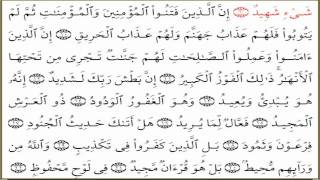 شَىْءٍ شَهِيدٌ ۝ إِنَّ ٱلَّذِينَ فَتَنُوا۟ ٱلْمُؤْمِنِينَ وَٱلْمُؤْمِنَٰتِ ثُمَّ لَمْ
يَتُوبُوا۟ فَلَهُمْ عَذَابُ جَهَنَّمَ وَلَهُمْ عَذَابُ ٱلْحَرِيقِ ۝ إِنَّ ٱلَّذِينَ
ءَامَنُوا۟ وَعَمِلُوا۟ ٱلصَّٰلِحَٰتِ لَهُمْ جَنَّٰتٌ تَجْرِى مِن تَحْتِهَا
ٱلْأَنْهَٰرُ ۚ ذَٰلِكَ ٱلْفَوْزُ ٱلْكَبِيرُ ۝ إِنَّ بَطْشَ رَبِّكَ لَشَدِيدٌ ۝ إِنَّهُۥ
هُوَ يُبْدِئُ وَيُعِيدُ ۝ وَهُوَ ٱلْغَفُورُ ٱلْوَدُودُ ۝ ذُو ٱلْعَرْشِ
ٱلْمَجِيدُ ۝ فَعَّالٌ لِّمَا يُرِيدُ ۝ هَلْ أَتَىٰكَ حَدِيثُ ٱلْجُنُودِ ۝
فِرْعَوْنَ وَثَمُودَ ۝ بَلِ ٱلَّذِينَ كَفَرُوا۟ فِى تَكْذِيبٍ ۝ وَٱللَّهُ مِن
وَرَآئِهِم مُّحِيطٌۢ ۝ بَلْ هُوَ قُرْءَانٌ مَّجِيدٌ ۝ فِى لَوْحٍ مَّحْفُوظٍۭ ۝